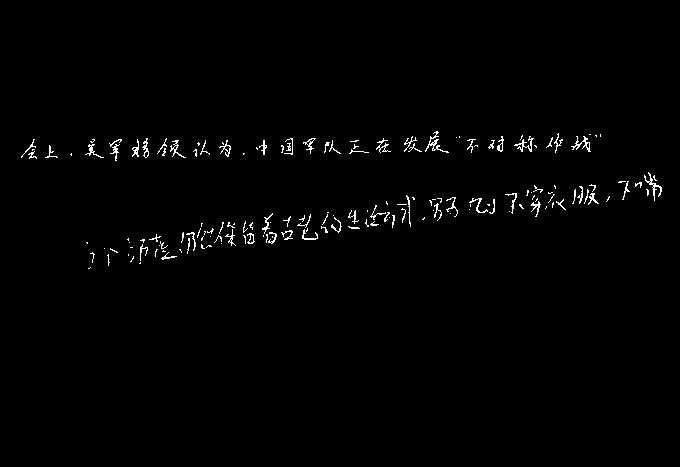 会上,美军将领认为,中国军队正在发展"不对称作战"
个部落仍然保留着古老的生活方式,男子 不穿衣服,只带